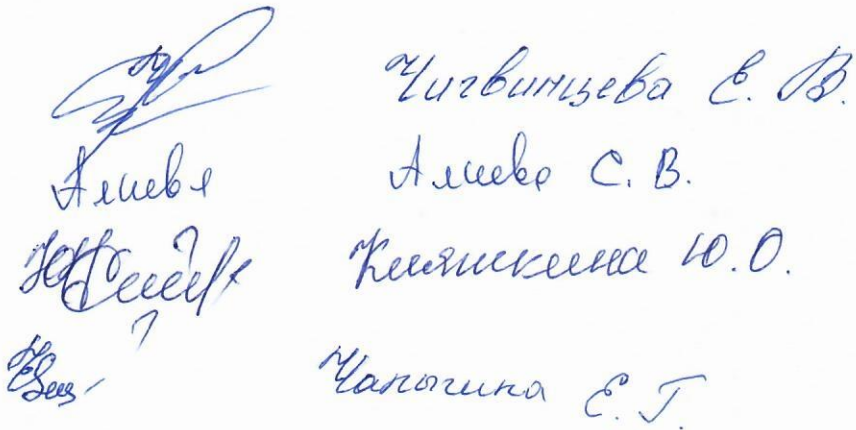 Чигвинцева Е. В.
Алиева Алиева С. В.
Княшкина Ю. О.
Чапыгина Е. Г.